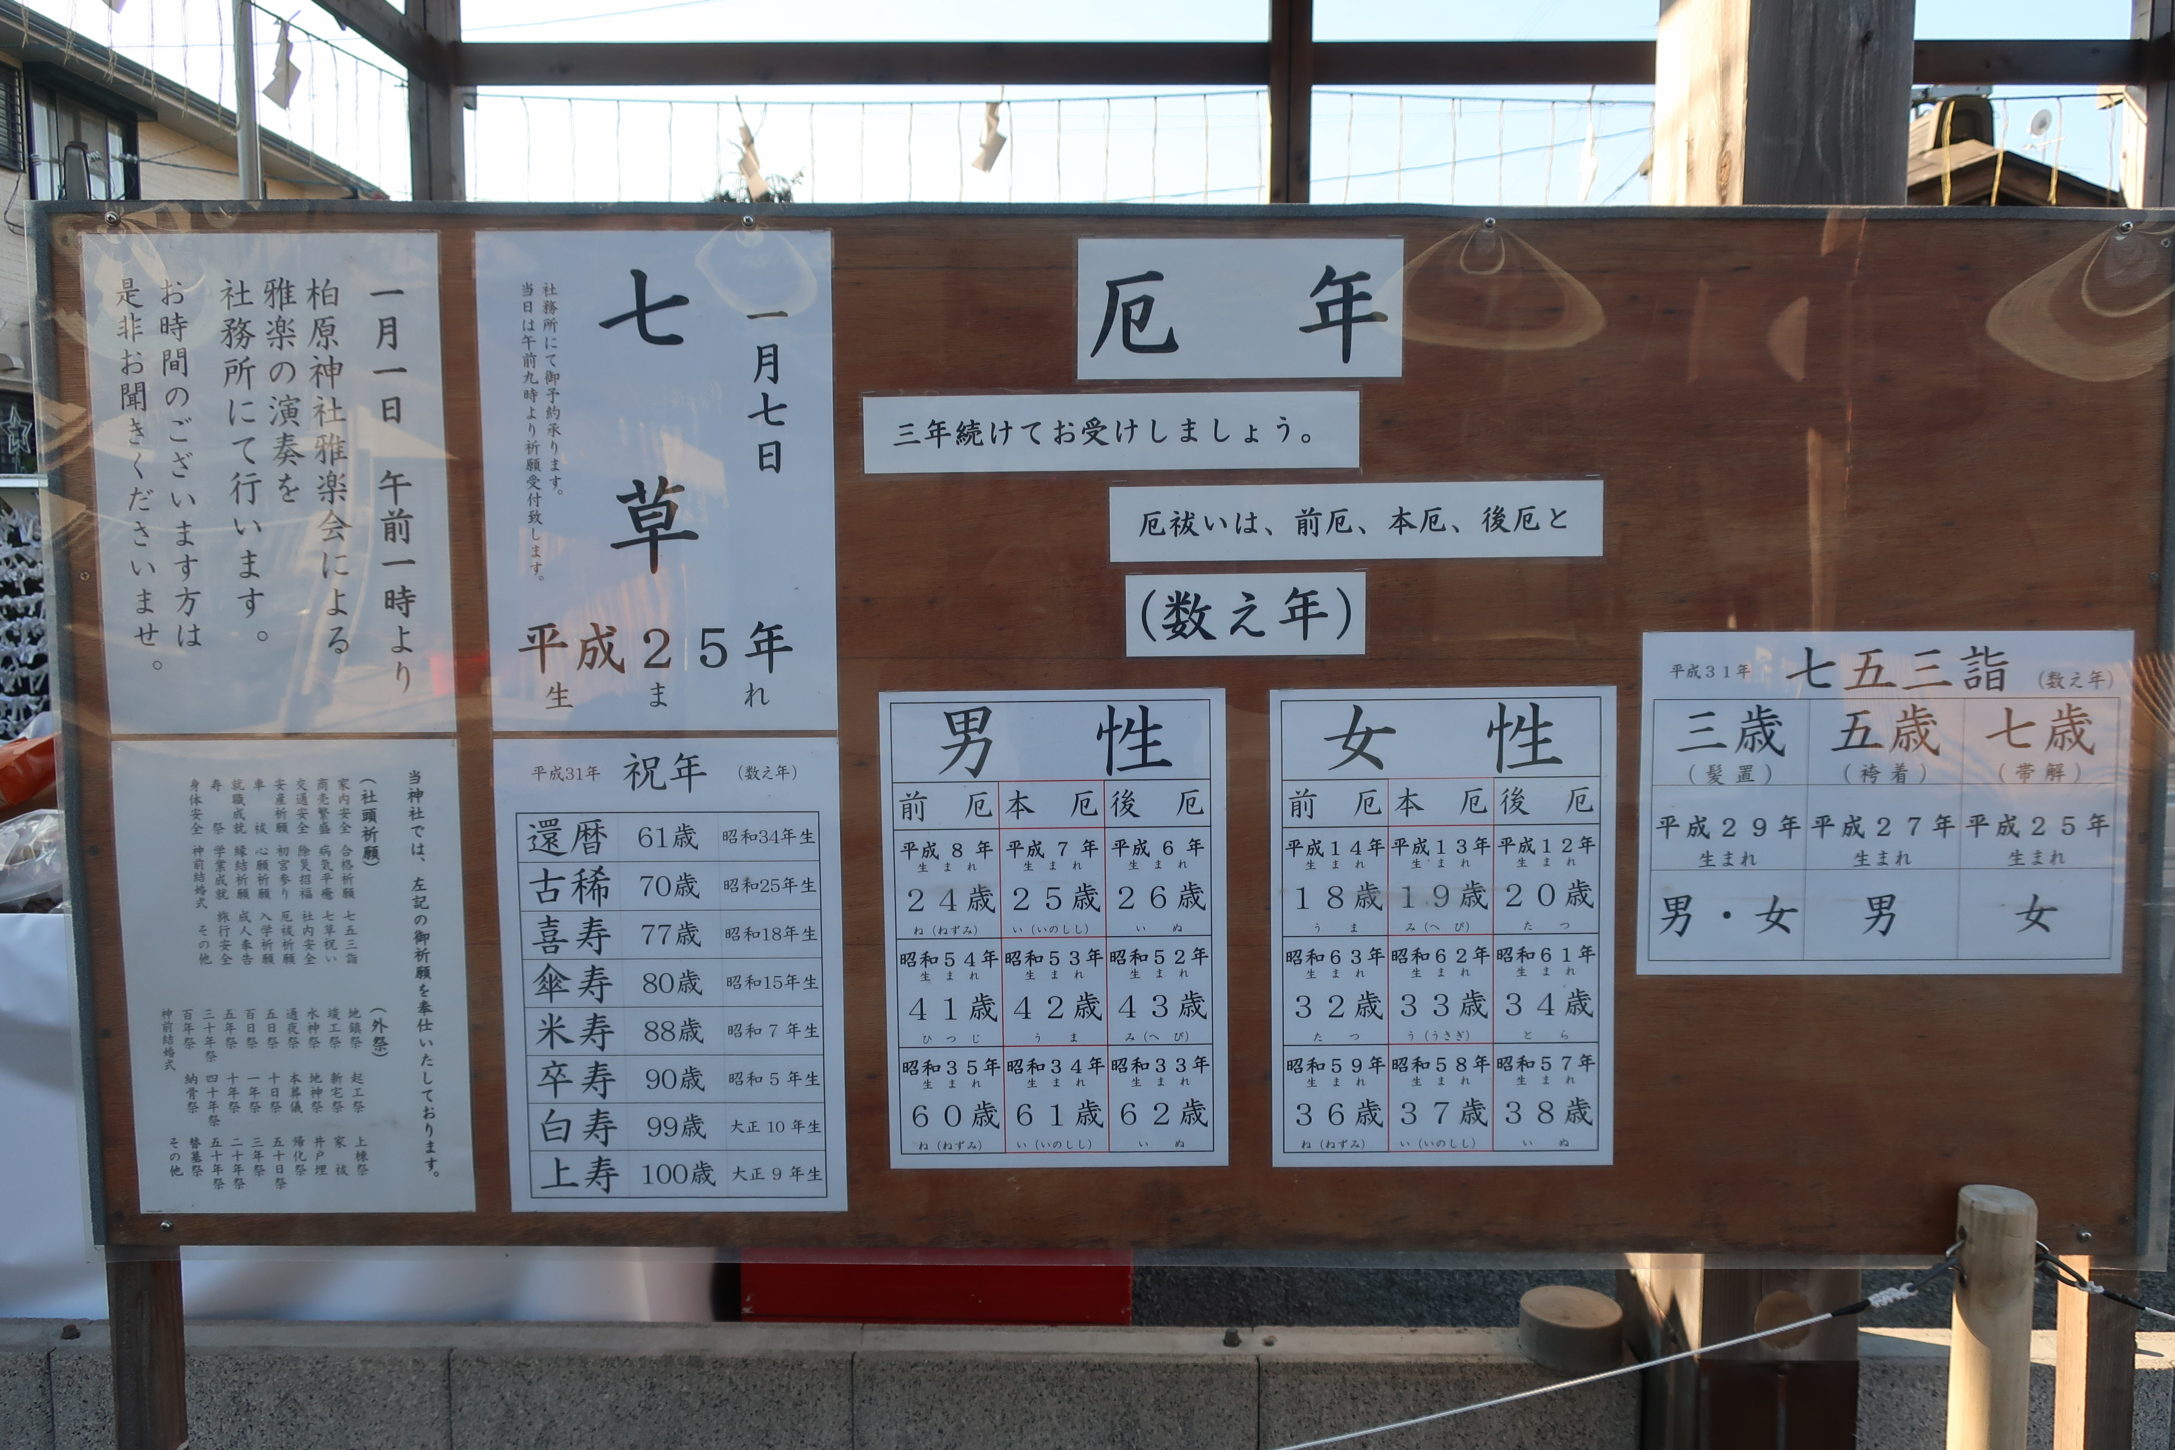 一月一日　午前一時より
柏原神社雅楽会による
雅楽の演奏を
社務所にて行います。
お時間のございます方は
是非お聞きくださいませ。
当神社では、左記の御祈願を奉仕いたしております。
（社頭祈願）
家内安全　合格祈願　七五三詣
商売繁盛　病気平癒　七草祝い
交通安全　除災招福　社内安全
安産祈願　初宮参り　厄祓祈願
車　祓　心願祈願　入学祈願
就職成就　縁結祈願　成人奉告
寿　祭　学業成就　旅行安全
身体安全　神前結婚式　その他
（外祭）
地鎮祭　起工祭　上棟祭
竣工祭　新宅祭　家　祓
水神祭　地神祭　井戸埋
通夜祭　本葬儀　帰化祭
五日祭　十日祭　五十日祭
百日祭　一年祭　三年祭
五年祭　十年祭　二十年祭
三十年祭　四十年祭　五十年祭
百年祭　納骨祭　替墓祭
神前結婚式　その他
一月七日
七草
社務所にて御予約承ります。
当日は午前九時より祈願受付致します。
平成２５年
生まれ
平成31年　祝年　（数え年）
還暦　61歳　昭和34年生
古稀　70歳　昭和25年生
喜寿　77歳　昭和18年生
傘寿　80歳　昭和15年生
米寿　88歳　昭和７年生
卒寿　90歳　昭和５年生
白寿　99歳　大正10年生
上寿　100歳　大正９年生
厄　年
三年続けてお受けしましょう。
厄祓いは、前厄、本厄、後厄と
（数え年）
男　性
前　厄　本　厄　後　厄
平成８年　平成７年　平成６年
生まれ　生まれ　生まれ
２４歳　２５歳　２６歳
ね（ねずみ）　い（いのしし）　いぬ
昭和５４年　昭和５３年　昭和５２年
生まれ　生まれ　生まれ
４１歳　４２歳　４３歳
ひつじ　うま　み（へび）
昭和３５年　昭和３４年　昭和３３年
生まれ　生まれ　生まれ
６０歳　６１歳　６２歳
ね（ねずみ）　い（いのしし）　いぬ
女　性
前　厄　本　厄　後　厄
平成１４年　平成１３年　平成１２年
生まれ　生まれ　生まれ
１８歳　１９歳　２０歳
うま　み（へび）　たつ
昭和６３年　昭和６２年　昭和６１年
生まれ　生まれ　生まれ
３２歳　３３歳　３４歳
たつ　う（うさぎ）　とら
昭和５９年　昭和５８年　昭和５７年
生まれ　生まれ　生まれ
３６歳　３７歳　３８歳
ね（ねずみ）　い（いのしし）　いぬ
平成３１年　七五三詣　（数え年）
三歳　五歳　七歳
（髪置）　（袴着）　（帯解）
平成２９年　平成２７年　平成２５年
生まれ　生まれ　生まれ
男・女　男　女